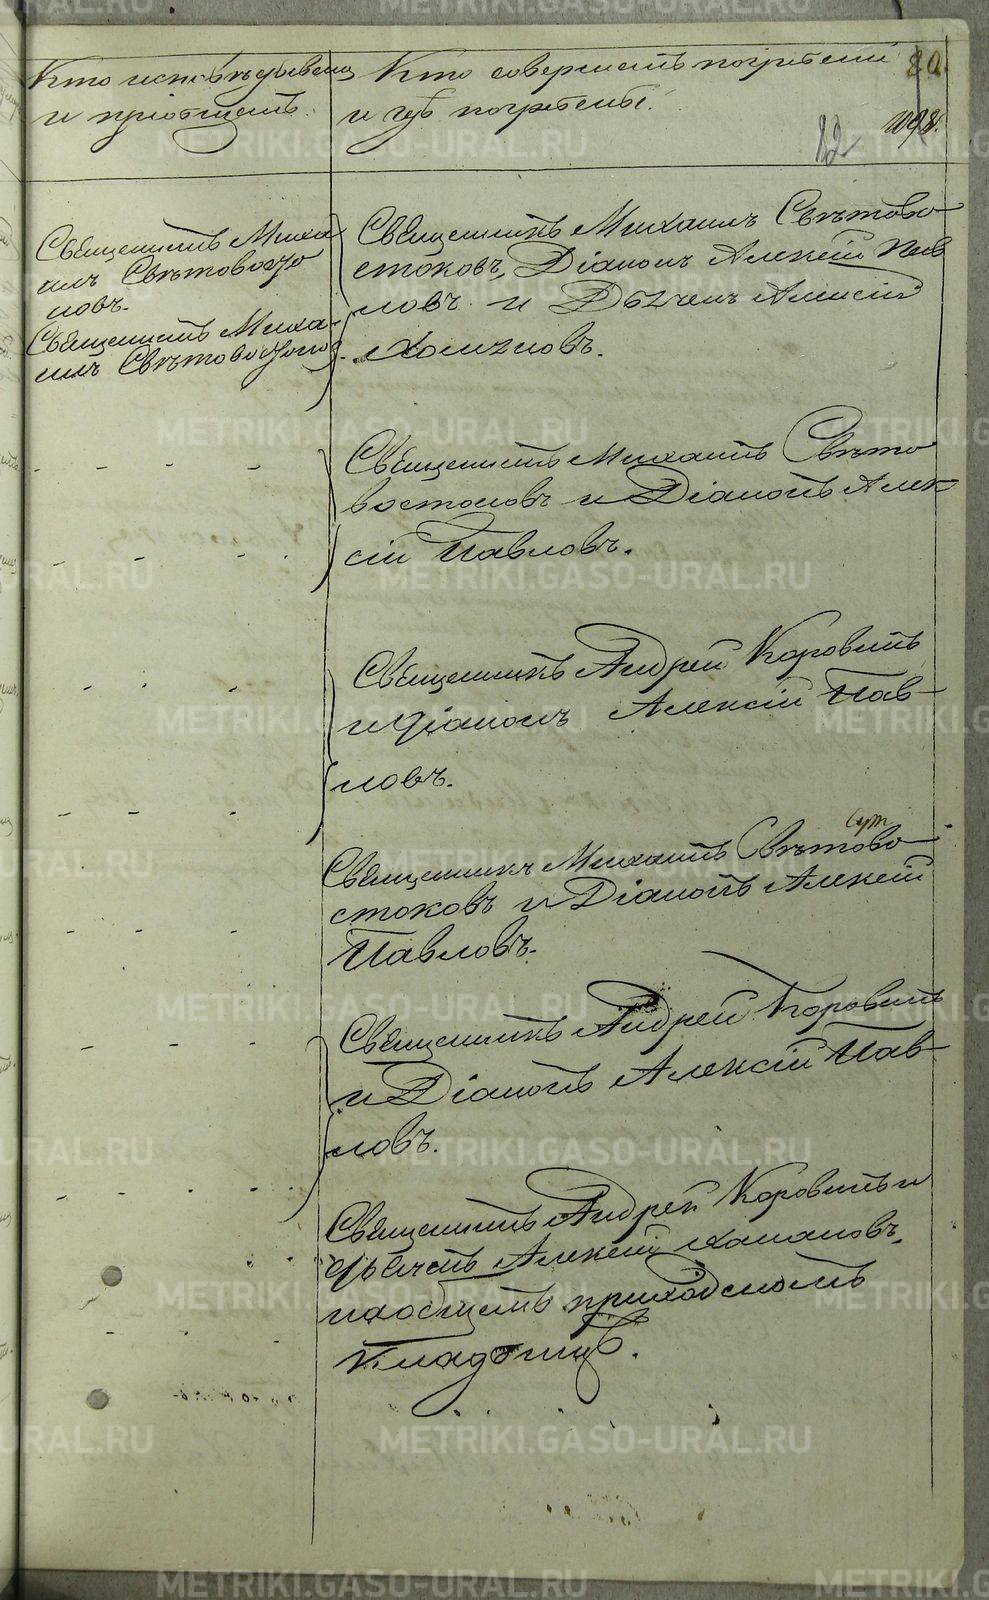 Кто исповѣдывалъ
и пріобщалъ.
Кто совершалъ погребеніе
и гдѣ погребены.
80.
82
Священникъ Миха
илъ Свѣтовосто
ковъ.
Священникъ Миха-
илъ Свѣтовостоков.
Священникъ Михаилъ Свѣтово-
стоковъ, Діаконъ Алексій Пав
ловъ и Дьячекъ Алексій
Хомяковъ.
Священникъ Михаилъ Свѣто
востоковъ и Діаконъ Алек
сій Павловъ.
Священникъ Андрей Коровинъ
и Діаконъ Алексій Пав-
ловъ.
Священникъ Михаилъ Свѣтово-
стоковъ и Діаконъ Алексій
Павловъ.
Священникъ Андрей Коровинъ
и Діаконъ Алексій Пав-
ловъ.
Священникъ Андрей Коровинъ и
дьячекъ Алексій
на общемъ приходскомъ
кладбищѣ.
METRIKI.GASO-URAL.RU